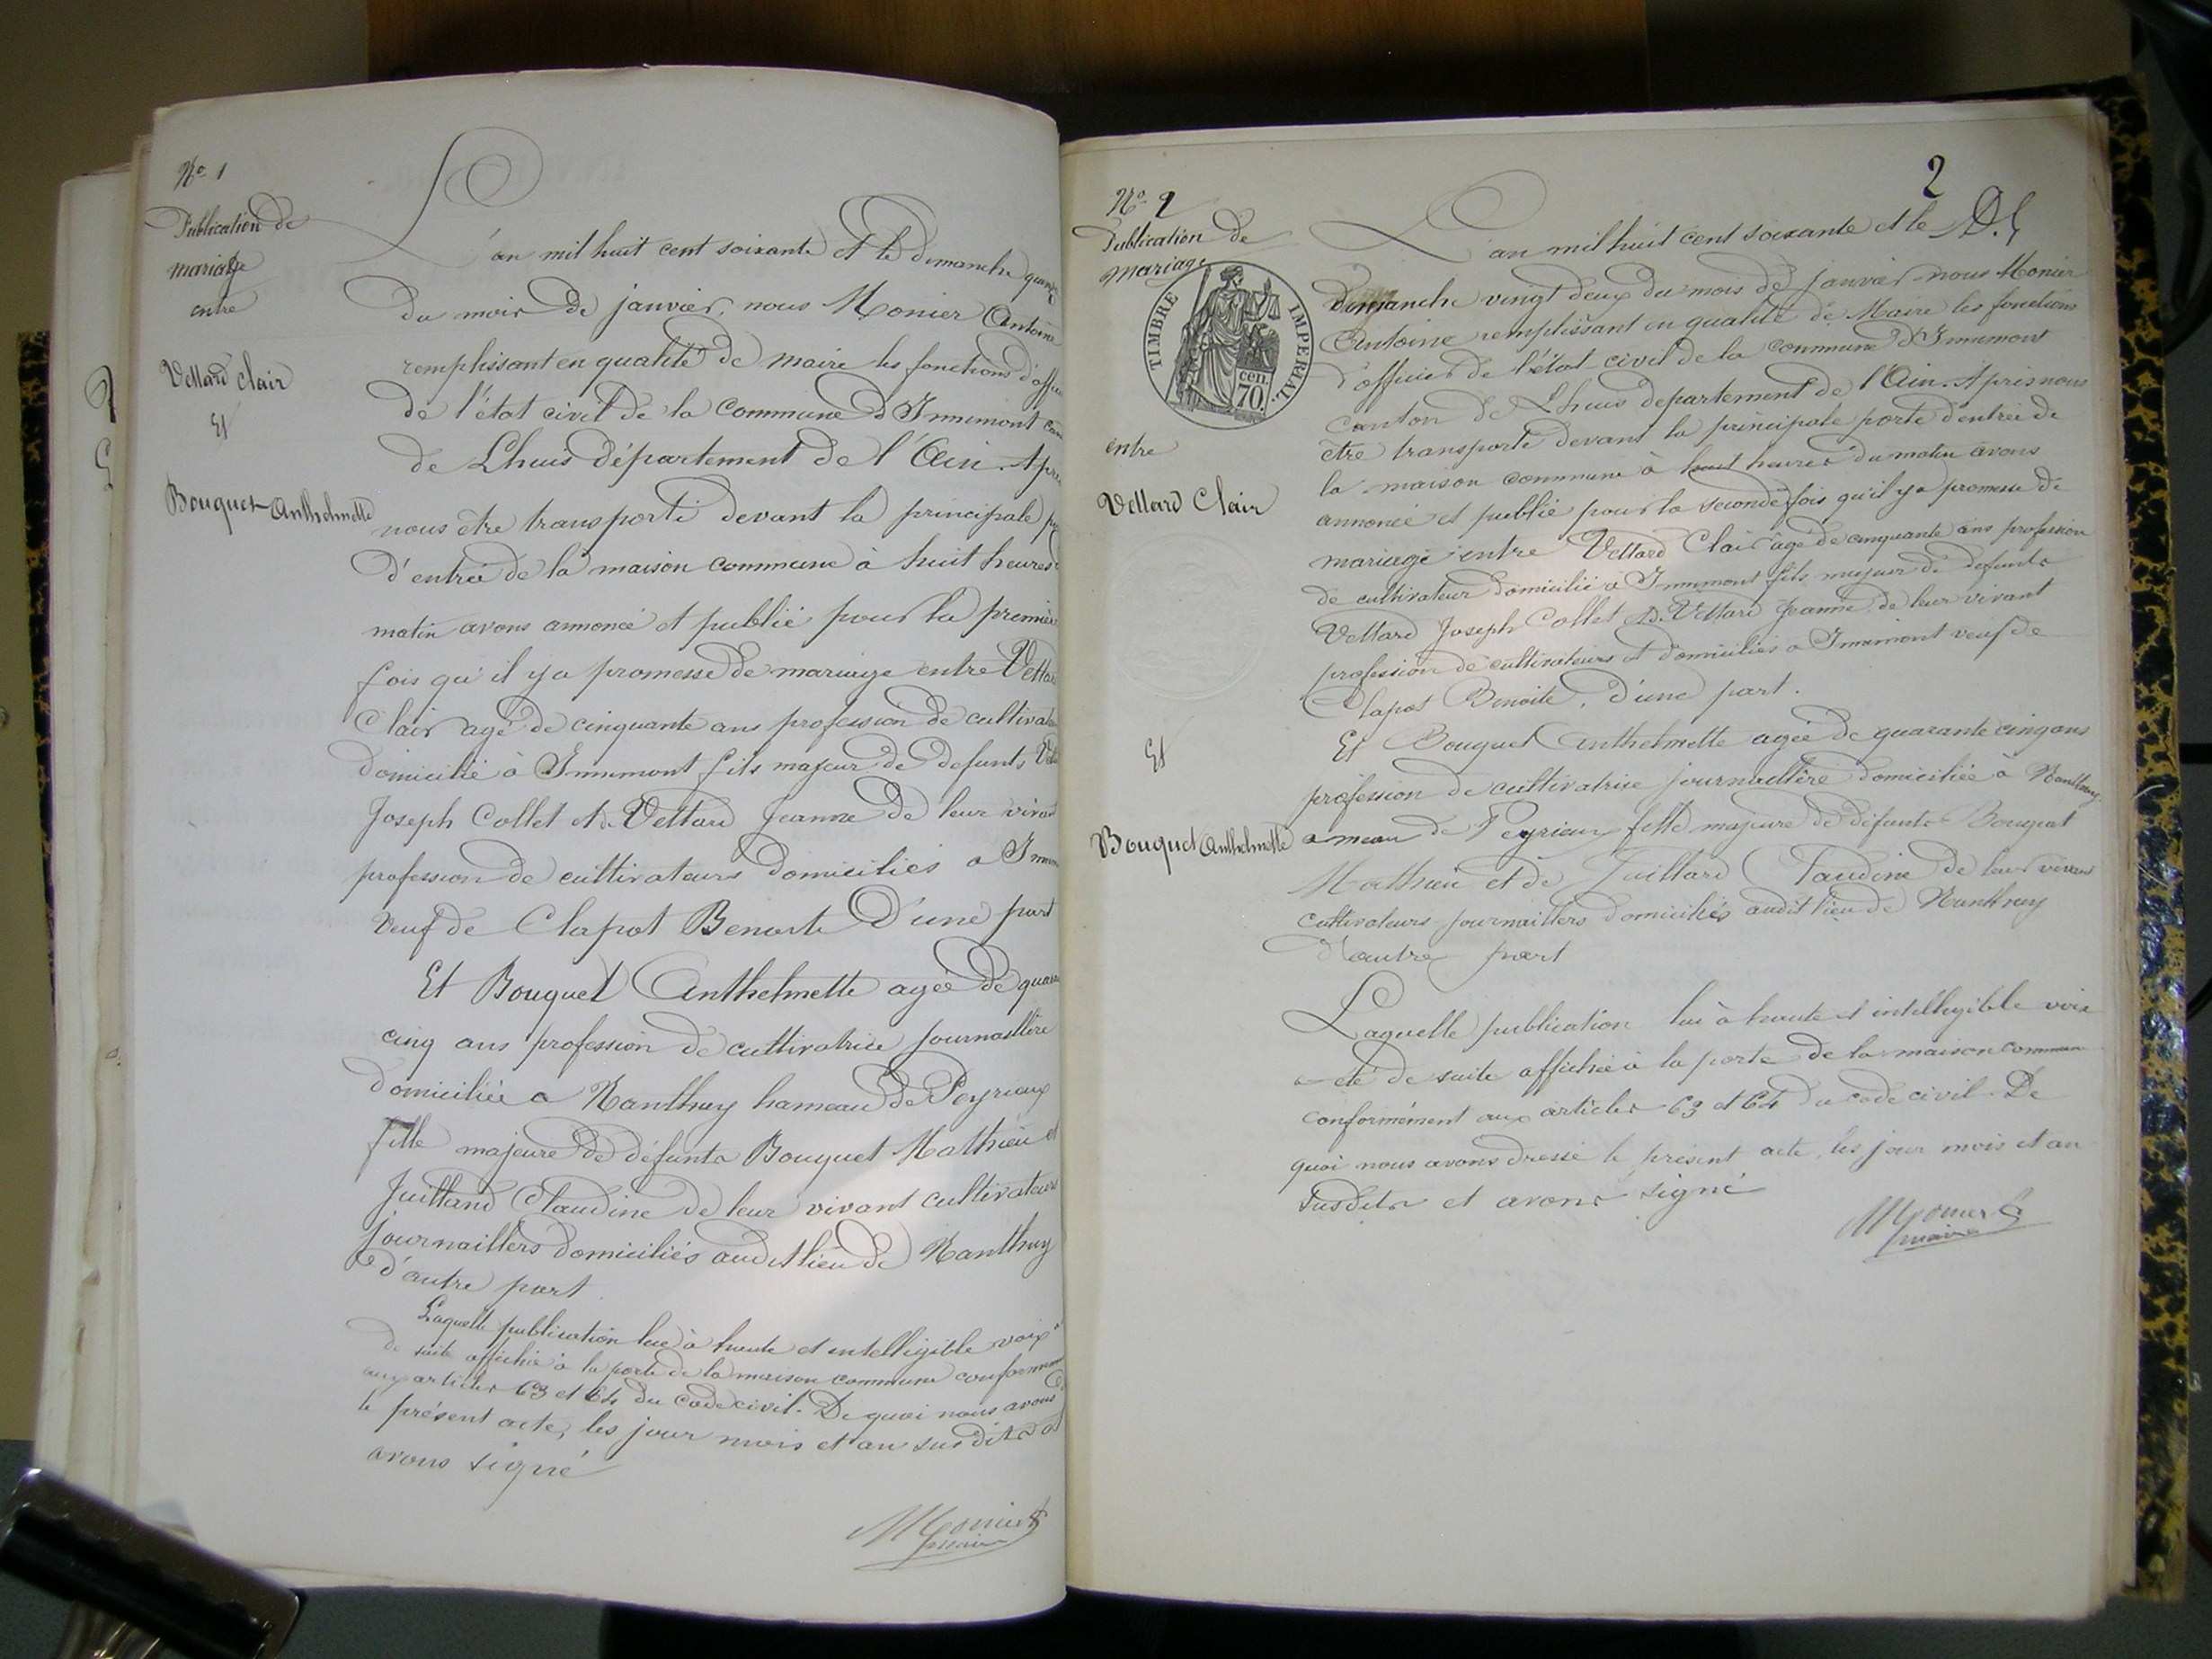 No 1
Publication de
mariage
entre
Vettard Clair
Et
Bouquet Anthelmette
L'an mil huit cent soixante et le dimanche
du mois de janvier, nous Monier Antoine
remplissant en qualité de maire les fonctions d'offi
de l'état civil de la Commune d'Innimont can
de Lhuis département de l'Ain. Aprè
nous être transporté devant la principale p
d'entrée de la maison commune à huit heures
matin avons annoncé et publié pour la premièr
fois qu'il y a promesse de mariage entre Vettar
Clair agé de cinquante ans profession de cultivat
domicilié à Innimont fils majeur de defunts
Joseph Collet et de Vettard Jeanne de leur vivant
profession de cultivateurs domiciliés a
veuf de Clapot Benoite D'une part
Et Bouquet Anthelmette agée de
cinq ans profession de cultivatrice journallière
domiciliée a Nanthuy hameau de Peyrieux
fille majeure de défunts Bouquet Mathieu et
Juillard Claudine de leur vivant cultivateurs
journailliers domiciliés audit lieu de Nanthuy
d'autre part
Laquelle publication lue à haute et intelligible voix a
de suite affichée à la porte de la maison commune conformem
aux articles 63 et 64 du Code civil. De quoi nous avons
le présent acte, les jour mois et an susdits et
avons signé
Monier
maire
2
D.G
No 2
Publication de
mariage
TIMBRE IMPERIAL.
cen.
70.
entre
Vettard Clair
Et
Bouquet Anthelmette
L'an mil huit cent soixante et le
dimanche vingt deux du mois de janvier nous Monier
Antoine remplissant en qualité de Maire les fonctions
d'officier de l'état civil de la commune d'Innimont
canton de Lhuis departement de l'Ain. Après nous
être transporté devant la principale porte d'entrée de
la maison commune à huit heures du matin avons
annoncé et publié pour la seconde fois qu'il y a promesse de
mariage entre Vettard Clair âgé de cinquante ans profession
de cultivateur domicilié a Innimont fils majeur de defunts
Vettard Joseph Collet et de Vettard Jeanne de leur vivant
profession de cultivateurs et domiciliés a Innimont veuf de
Clapot Benoite, d'une part.
Et Bouquet Anthelmette agée de quarante cinq ans
profession de cultivatrice journallière domiciliée à Nanthuy
ameau de Peyrieux fille majeure de défunts Bouquet
Mathieu et de Juillard Claudine de leur vivant
cultivateurs journailliers domiciliés audit lieu de Nanthuy
d'autre part
Laquelle publication lue à haute et intelligible voix
a été de suite affichée à la porte de la maison commune
conformément aux articles 63 et 64 du code civil. De
quoi nous avons dressé le présent acte, les jour mois et an
susdits et avons signé
Monier
maire